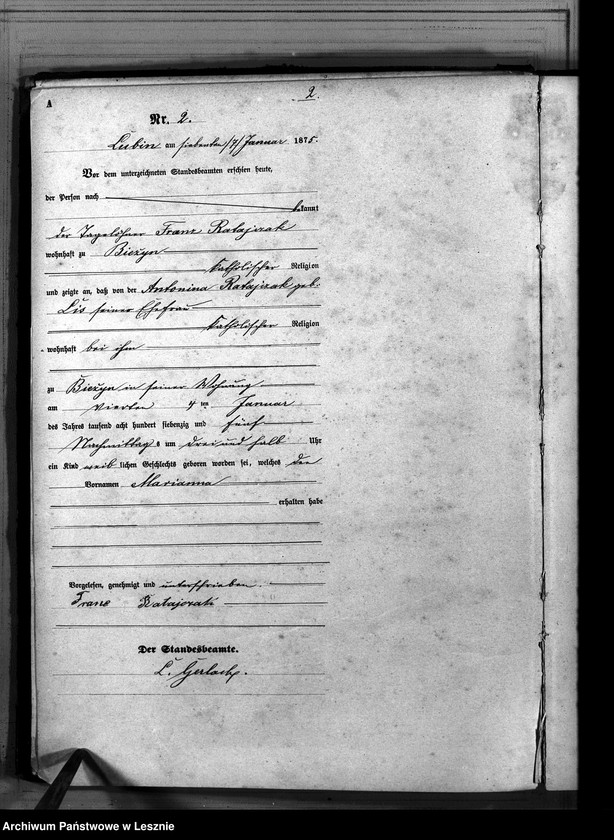 A
2.
Nr. 2.
Lubin am siebenten /7/ Januar 1875.
Vor dem unterzeichneten Standesbeamten erschien heute,
der Person nach
bekannt
der Tagelöhner Franz Ratajczak
wohnhaft zu Bieżyn
katholischer Religion
und zeigte an, daß von der Antonina Ratajczak geb.
Lis seiner Ehefrau
katholischer Religion
wohnhaft bei ihm
zu Bieżyn in seiner Wohnung
am vierten 4 ten Januar
des Jahres tausend acht hundert siebenzig und fünf
Nachmittags um drei und halb Uhr
ein Kind weiblichen Geschlechts geboren worden sei, welches den
Vornamen Marianna
erhalten habe
Vorgelesen, genehmigt und unterschrieben.
Franc Ratajczak
Der Standesbeamte.
L. Gerlach.
Archiwum Państwowe w Lesznie